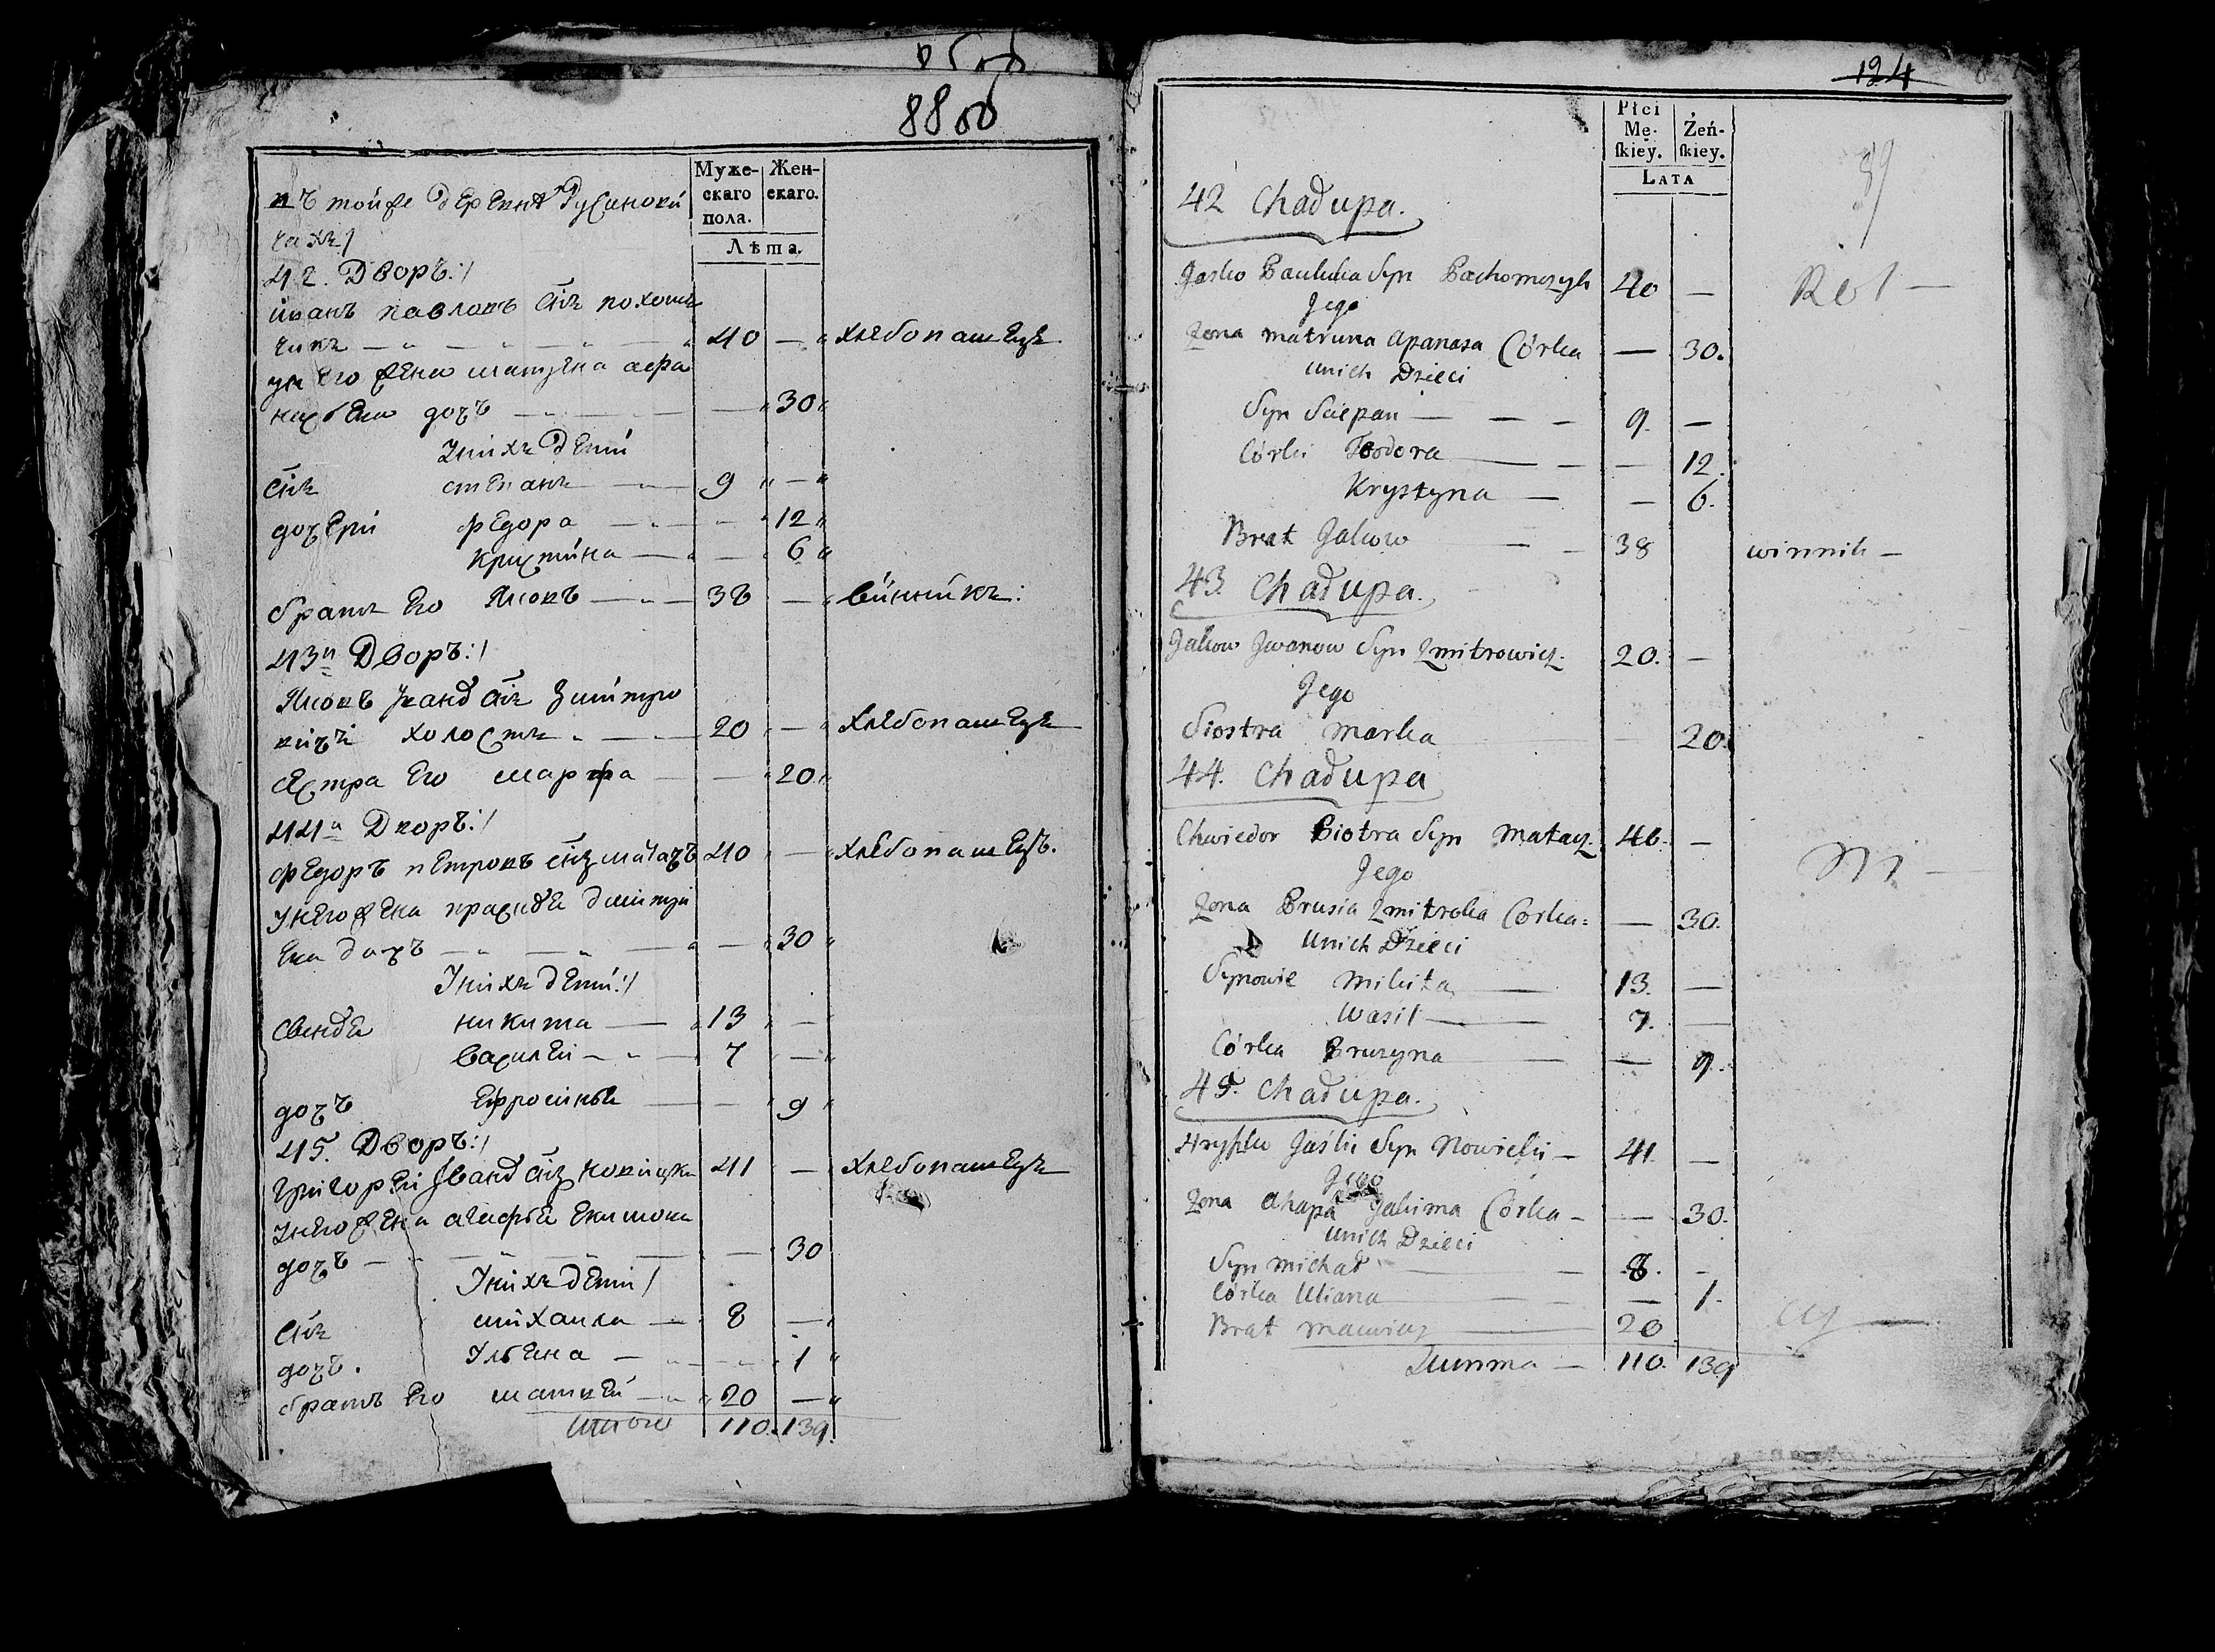 8800
Муже-
скаго
пола.
Жен-
скаго.
Лѣта.
въ тойже деревнѣ Русинови
чахъ
42. Дворъ:
иванъ павловъ сынъ пахом
чикъ — 40 — хлебопашецъ
у него жена матрена афа
насьева дочъ — 30
У нихъ дети
сынъ степанъ — 9 —
дочери федора — 12
кристина — 6
братъ его Яковъ — 38 — винникъ:
43й Дворъ:
Яковъ Иванов сынъ Змитро
вичъ холостъ — 20 — хлебопашецъ
сестра его марфа — 20
44й Дворъ:
федоръ петровъ сынъ матачъ 40 — хлебопашецъ.
У него жена прасковя дмитри
ева дочъ — 30
У нихъ дети:
никита — 13 —
василеи — 7 —
дочъ Ефросиня — 9
45. Дворъ:
григореи Иванов сынъ новицки 41 — хлебопашецъ
У него жена агафья екимова
дочъ — 30
У нихъ дети
сынъ михаила — 8 —
дочъ. Ульяна — 1
братъ его матвеи — 20 —
Итого 110. 139.
124
Płci
Mę-
ſkiey.
Żeń-
ſkiey.
Lata
89
42 Chałupa.
Jaśko Pauluka Syn Pachomczyk 40 —
Jego
Zona Matruna Apanasa Córka — 30.
Unich Dzieci
Syn Sciepan — 9. —
Córki Teodora — 12.
Krystyna — 6.
Brat Jakow — 38 winnik —
43. Chałupa.
Jakow Jwanow Syn Zmitrowicz. 20. —
Jego
Siostra Marka — 20.
44. Chałupa
Chwiedor Piotra Syn Matacz. 40. —
Jego
Zona Prusia Zmitroka Córka — 30.
Unich Dzieci
Synowie Mikita — 13. —
Wasil — 7. —
Córka Pruzyna — 9.
45. Chałupa.
Hryszko Jaśki Syn Nowicki — 41. —
Jego
Zona Ahapa Jakima Córka — 30.
Unich Dzieci
Syn Michał — 8. —
Córka Uliana — 1.
Brat Maciey — 20
Summa — 110. 139